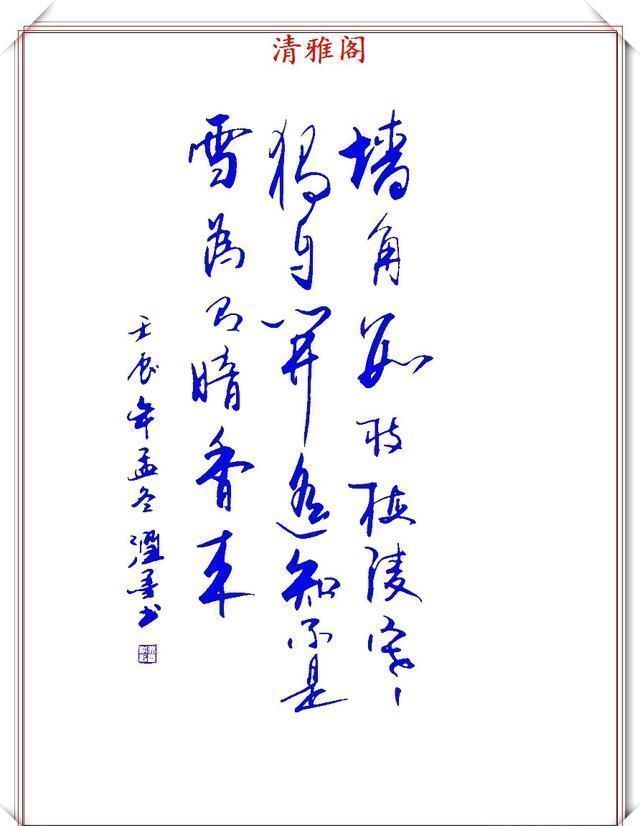 清雅阁
墙角数枝梅凌寒
独自開遥知不是
雪為有暗香来
壬辰年孟冬书